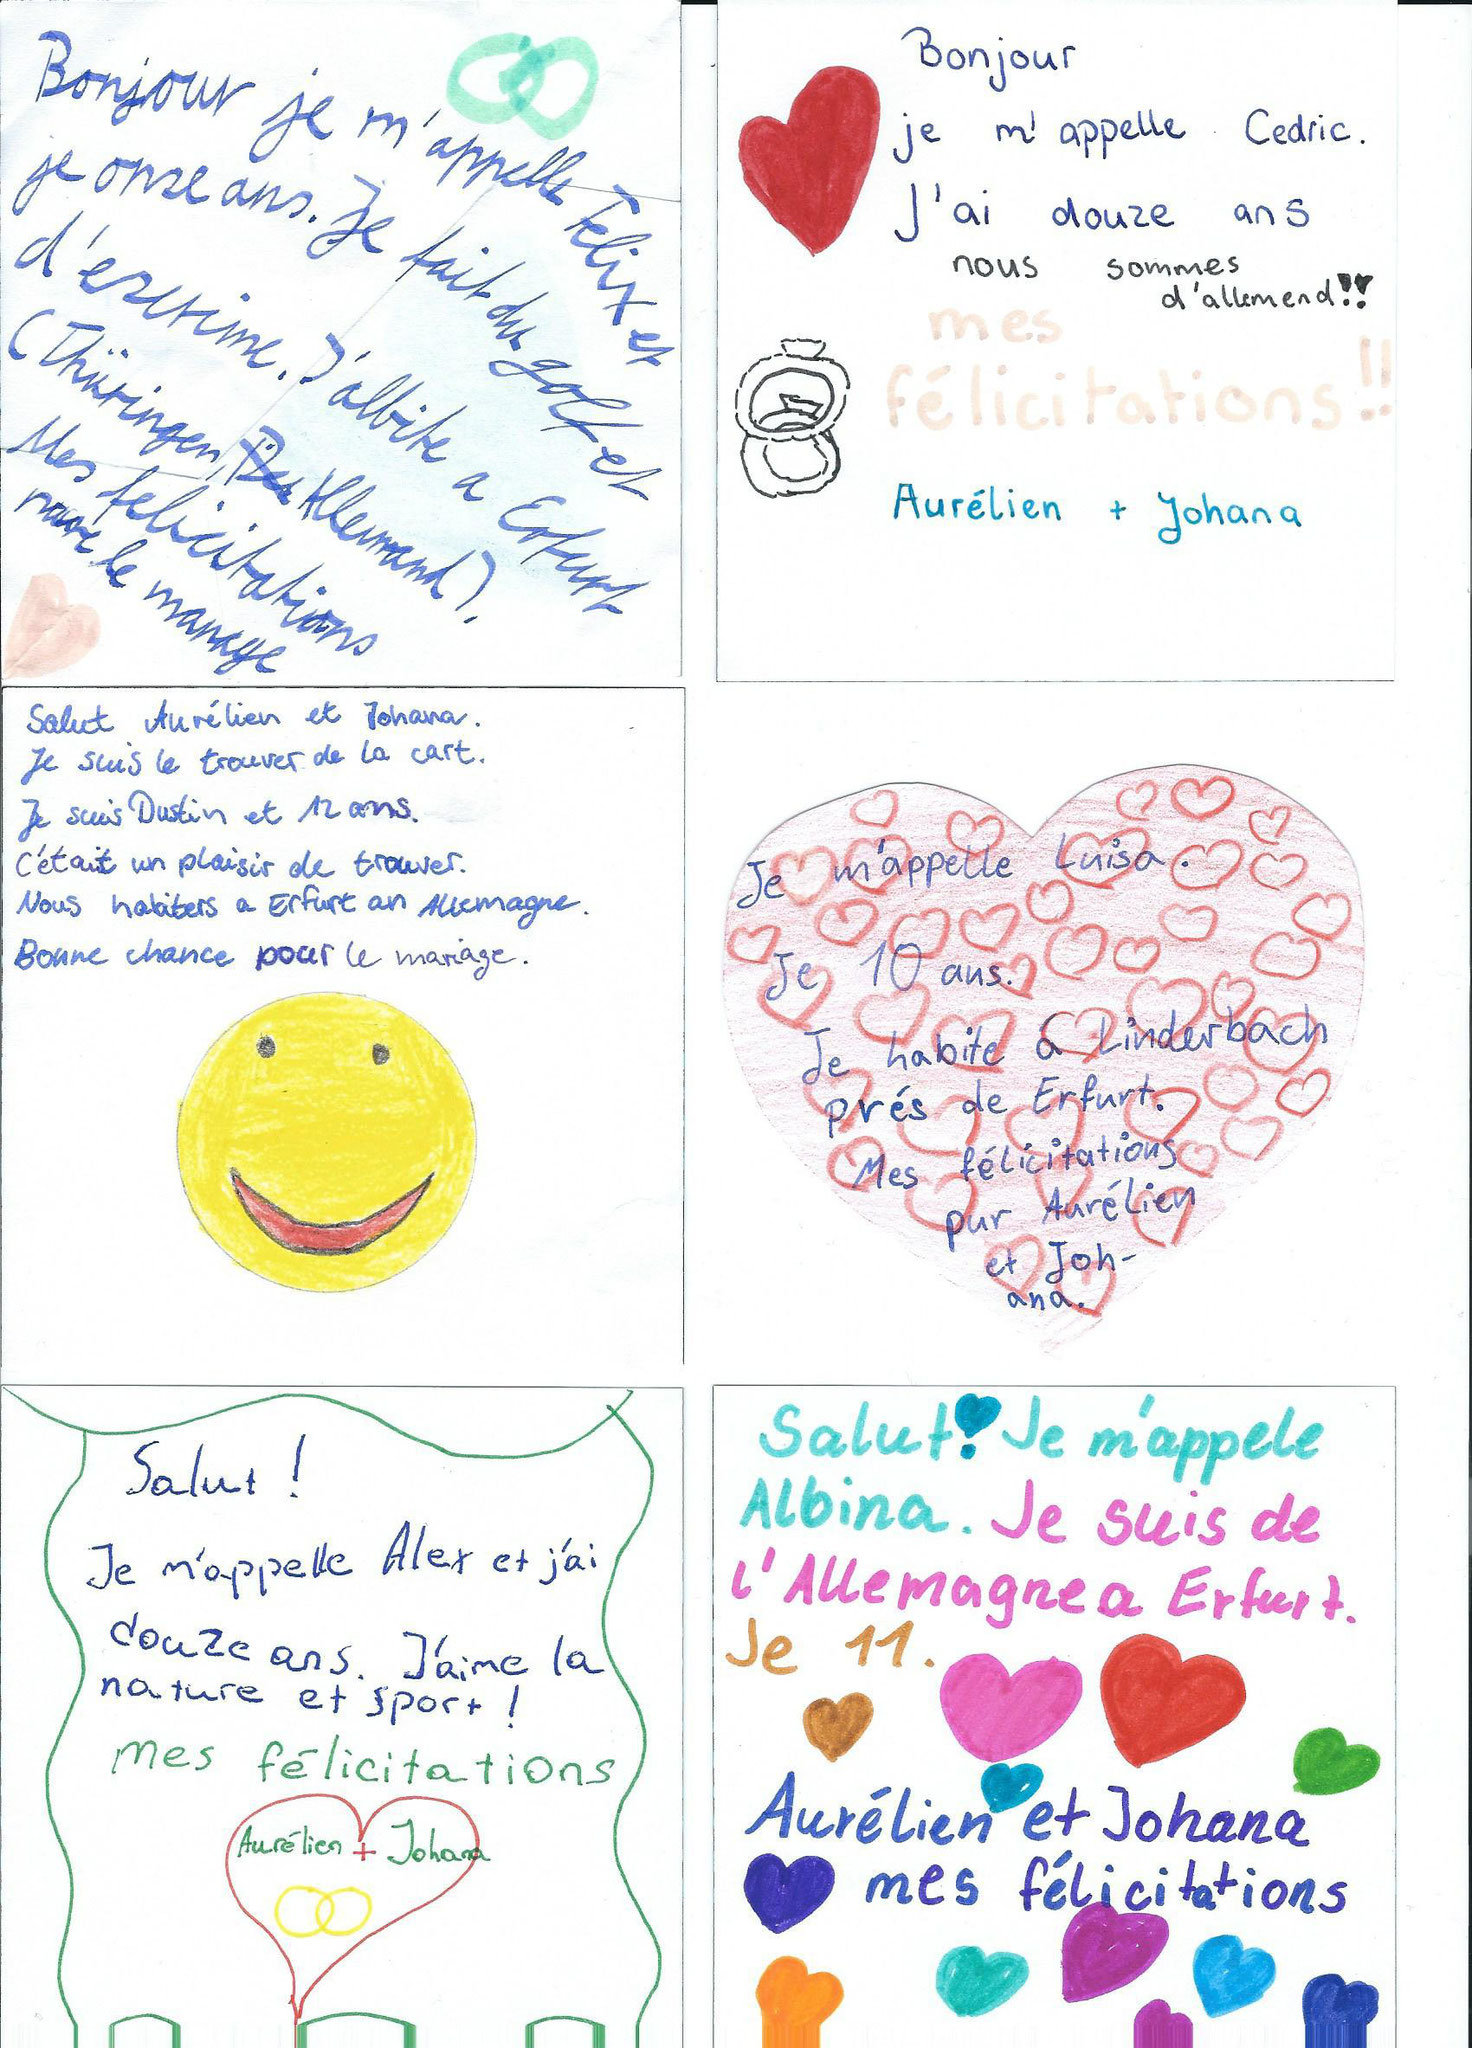 Bonjour je m'appelle Felix et
je onze ans. Je fait du golf et
d'escrime. J'albite a Erfurt
(Thüringen, Allemand).
Mes felicitations
le mariage
Bonjour
je m'appelle Cedric.
J'ai douze ans
nous sommes
d'allemend!!
mes
félicitations!!
Aurélien + Johana
Salut Aurélien et Johana.
Je suis le trouver de la cart.
Je suis Dustin et 12 ans.
C'était un plaisir de trouver.
Nous habiters a Erfurt an Allemagne.
Bonne chance pour le mariage.
Je m'appelle Luisa.
Je 10 ans.
Je habite á Linderbach
prés de Erfurt.
Mes félicitations
pur Aurélien
et Joh-
ana.
Salut !
Je m'appelle Alex et j'ai
douze ans. J'aime la
nature et sport !
Mes félicitations
Aurélien + Johana
Salut! Je m'appele
Albina. Je suis de
l'Allemagne a Erfurt.
Je 11.
Aurélien et Johana
mes félicitations